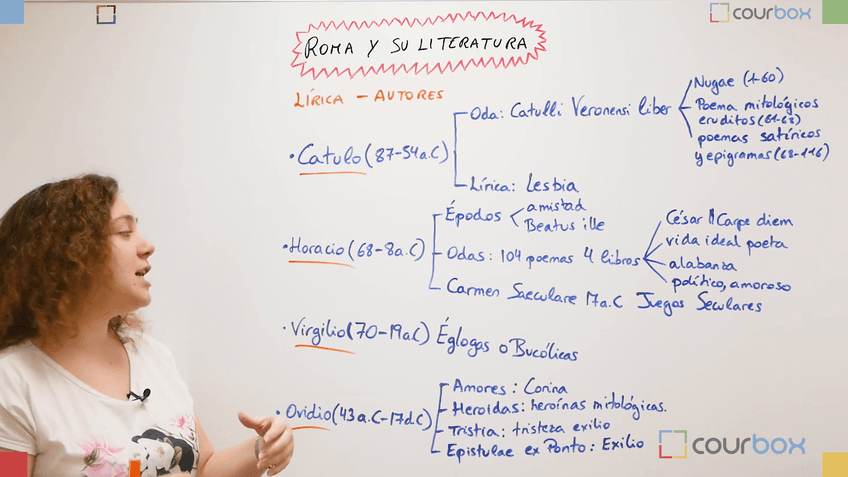 courbox
ROMA Y SU LITERATURA
LÍRICA - AUTORES
• Catulo (87-54a.C)
Oda: Catulli Veronensi liber
Nugae (1-60)
Poema mitológicos
eruditos (61-68)
poemas satíricos
y epigramas (68-116)
Lírica: Lesbia
• Horacio (68-8a.C)
Épodos
amistad
Beatus ille
Odas: 104 poemas 4 libros
César Carpe diem
vida ideal poeta
alabanza
político, amoroso
Carmen Saeculare 17a.C Juegos Seculares
• Virgilio (70-19a.C) Églogas o Bucólicas
• Ovidio (43a.C-17d.C)
Amores: Corina
Heroidas: heroínas mitológicas.
Tristia: tristeza exilio
Epistulae ex Ponto: Exilio
courbox